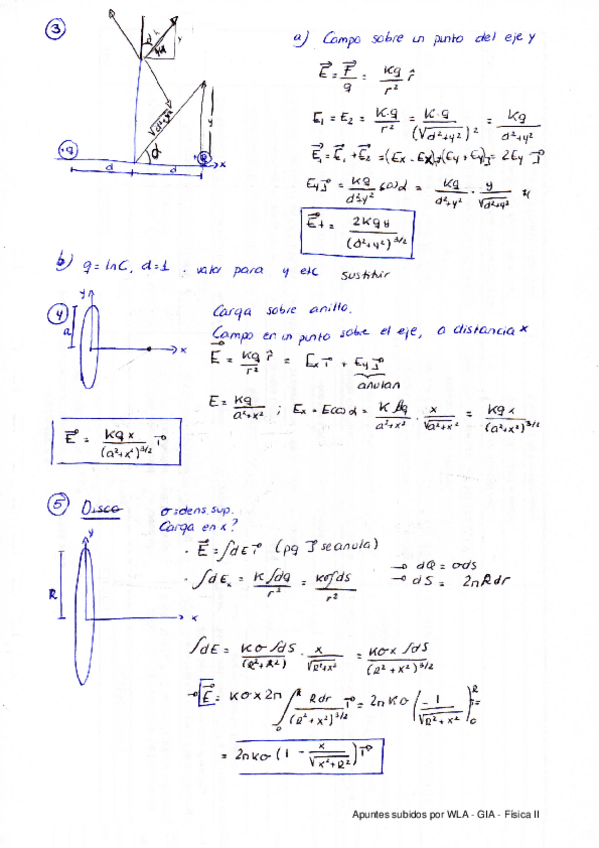 ③
a) Campo sobre un punto del eje y
E⃗ = F⃗/q = Kq/r² r̂
E₁ = E₂ = K·q/r² = K·q/(√d²+y²)² = Kq/d²+y²
E⃗₁ = E⃗₁ + E⃗₂ = (Ex - Ex)i + (Ey + Ey)J⃗ = 2Ey J⃗
Ey J⃗ = Kq/d²+y² cosα = Kq/d²+y² · y/√d²+y²
E⃗t = 2Kqy/(d²+y²)^3/2
√d²+y²
α
+q
x
d
d
b) q = 1nC, d=1 . valor para y etc sustituir
④
y
a
x
Carga sobre anillo.
Campo en un punto sobre el eje, a distancia x
E⃗ = Kq/r² r̂ = Ex i⃗ + Ey J⃗
anulan
E = Kq/a²+x² ; Ex = E cosα = K q/a²+x² · x/√a²+x² = Kqx/(a²+x²)^3/2
E⃗ = Kqx/(a²+x²)^3/2 i⃗
⑤ Disco
σ=dens.sup.
Carga en x?
y
R
x
· E⃗ = ∫dE i⃗ (pq J⃗ se anula)
· ∫dEx = K∫dq/r² = Kσ∫ds/r²
→ dQ = σds
→ dS = 2πRdr
∫dE = Kσ∫dS/(R²+R²) · x/√R²+x² = Kσx∫dS/(R²+x²)^3/2
→ E⃗ = Kσx2π ∫₀ᴿ Rdr/(R²+x²)^3/2 i⃗ = 2πKσ (-1/√R²+x²)₀ᴿ i⃗ =
= 2πKσ (1 - x/√x²+R²) i⃗
Apuntes subidos por WLA - GIA - Física II